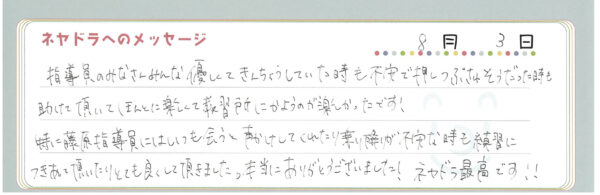 ネヤドラへのメッセージ
8月 3日
指導員のみなさんみんな優しくてきんちょうしていた時も不安で押しつぶされそうだった時も
助けて頂いてほんとに楽しくて教習所にかようのが楽しかったです!
特に藤原指導員にはいつも会うと声かけしてくれたり乗り降りが不安な時も練習に
つきあって頂いたりとても良くして頂きました。本当にありがとうございました! ネヤドラ最高です!!